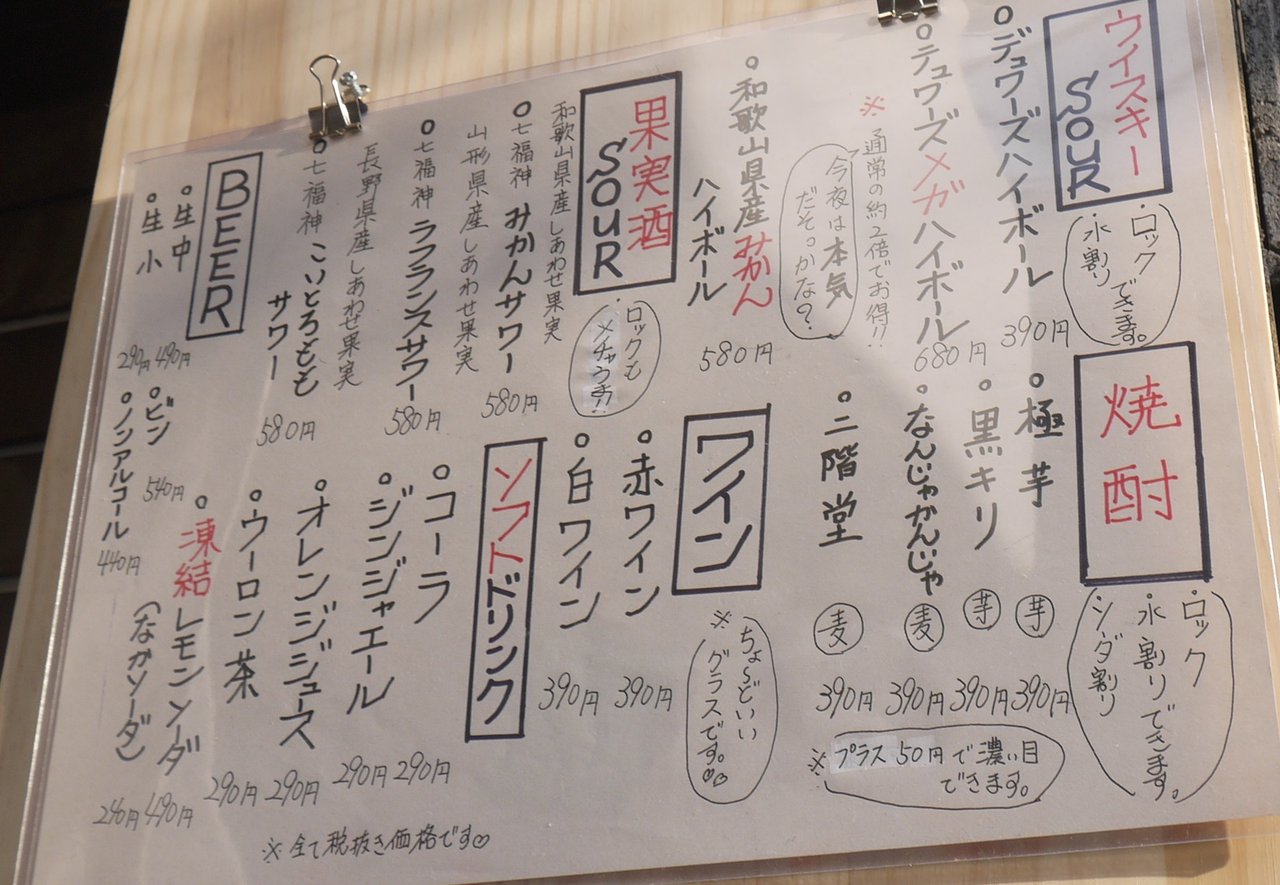 ウイスキー
SOUR
・ロック
・水割り
できます。
デュワーズハイボール 390円
テュワーズメガハイボール 680円
※通常の約2倍でお得!!
今夜は本気
だぞっかな?
和歌山県産みかん
ハイボール 580円
果実酒
SOUR
・ロックも
メチャうま!!
和歌山県産しあわせ果実
七福神 みかんサワー 580円
山形県産しあわせ果実
七福神 ラフランスサワー 580円
長野県産しあわせ果実
七福神 こいとろもも
サワー 580円
BEER
生中 490円
生小 290円
ビン 540円
ノンアルコール 440円
焼酎
・ロック
・水割りできます。
・ソーダ割り
極芋 芋 390円
黒キリ 芋 390円
なんじゃかんじゃ 麦 390円
二階堂 麦 390円
※プラス50円で濃い目
できます。
ワイン
※ちょ〜どいい
グラスです。♡♡
赤ワイン 390円
白ワイン 390円
ソフトドリンク
コーラ 290円
ジンジャエール 290円
オレンジジュース 290円
ウーロン茶 290円
凍結レモンソーダ 490円
(なかソーダ) 240円
※全て税抜き価格です♡